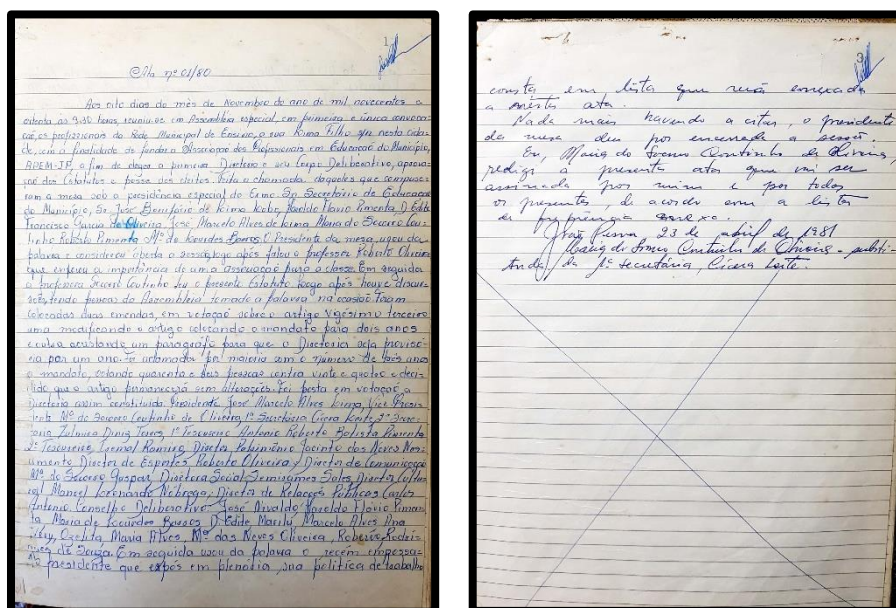 1
Ata nº 01/80
Aos oito dias do mês de Novembro do ano de mil novecentos e
oitenta as 9:30 horas, reuniu-se em Assembléia especial, em primeira e única convoca-
ção, os profissionais da Rede Municipal de Ensino, a rua Lima Filho s/n nesta cida-
de, com a finalidade de fundar a Associação dos Profissionais em Educação do Município,
APEM-JP, a fim de eleger a primeira Diretoria e seu Corpo Deliberativo, aprova-
ção dos Estatutos e posse dos eleitos. Feita a chamada daqueles que compuse-
ram a mesa sob a presidência especial do Exmo Sr. Secretário de Educação
do Município, Sr. José Lobo, Haroldo Flávio Pimenta, D. Edite
Francisco Garcia de Oliveira, José Marcelo Alves de Lima, Maria do Socorro Cou-
tinho Roberto Pimenta, Mª de Lourdes Barros. O Presidente da mesa, usou da
palavra e considerou aberta a sessão, logo após falou o professor Roberto Oliveira
que expôs a importância de uma associação para a classe. Em seguida
a professora Socorro Coutinho leu o presente Estatuto logo após houve discus-
sões, tendo pessoas da Assembléia tomado a palavra na ocasião foram
colocadas duas emendas, em votação sobre o artigo vigésimo terceiro
uma modificando o artigo colocando o mandato para dois anos
e outra acrescentando um parágrafo para que a Diretoria seja provisó-
ria por um ano. Foi aclamado por maioria com o número de dois anos
o mandato, votando quarenta e duas pessoas contra vinte e quatro e deci-
dido que o artigo permanecerá sem alterações. Foi posta em votação a
Diretoria assim constituida: Presidente José Marcelo Alves Lima, Vice Presi-
dente Mª do Socorro Coutinho de Oliveira, 1ª Secretária Cícera Leite, 2ª Secre-
tária Zulmira Diniz, 1º Tesoureiro Antonio Roberto Batista Pimenta
2º Tesoureiro, Ramiro, Diretor Patrimônio Jacinto das Neves Nas-
cimento, Diretor de Esportes Roberto Oliveira, Diretor de Comunicação
Mª do Socorro Gaspar, Diretora Social Semiramis Sales, Diretor Cultu-
ral Manoel Fernando Nóbrega, Diretor de Relações Públicas Carlos
Antonio. Conselho Deliberativo: José Nivaldo, Haroldo Flávio Pimen-
ta, Maria de Lourdes Barros, D. Edite, Marilú, Marcelo Alves, Ana
Ozelita, Maria Alves, Mª das Neves Oliveira, Roberto Rodri-
gues de Souza. Em seguida usou da palavra o recem empossa-
do presidente que expôs em plenária, sua política de trabalho
3
consta em lista que será anexada
a nesta ata.
Nada mais havendo a citar, o presidente
da mesa deu por encerrada a sessão
Eu, Maria do Socorro Coutinho de Oliveira,
redigi a presente ata que vai ser
assinada por mim e por todos
os presentes, de acordo com a lista
de frequência anexo.
João Pessoa 23 de abril de 1981
Maria do Socorro Coutinho de Oliveira - substi-
tuta da 1ª secretária, Cícera Leite.